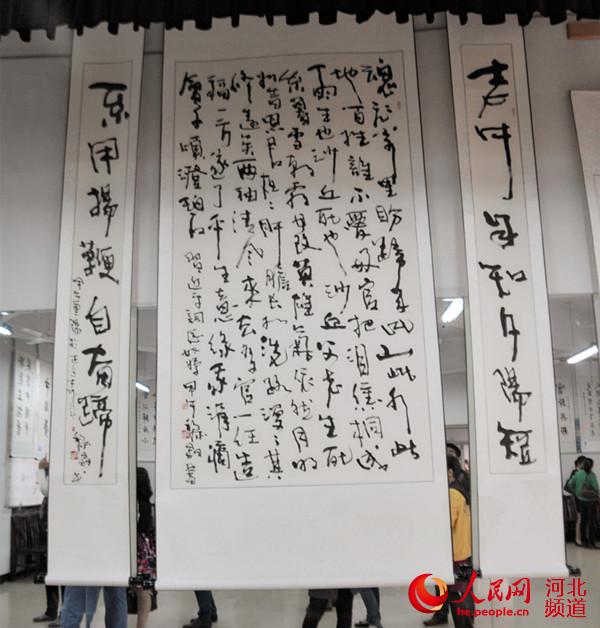 老牛自知夕陽短
魂飛万里盼歸来此水此山此
地百姓誰不愛好官把泪焦桐成
雨生也沙丘死也沙丘父老生死
系暮雪朝霜毋改英雄意氣依然月明
如昔思君夜夜肝膽长如洗路漫漫其
修遠矣两袖清风来去为官一任造
福一方遂了平生意绿我涓滴
會它千頃澄碧
不用揚鞭自奮蹄
人民网 河北频道
he.people.cn